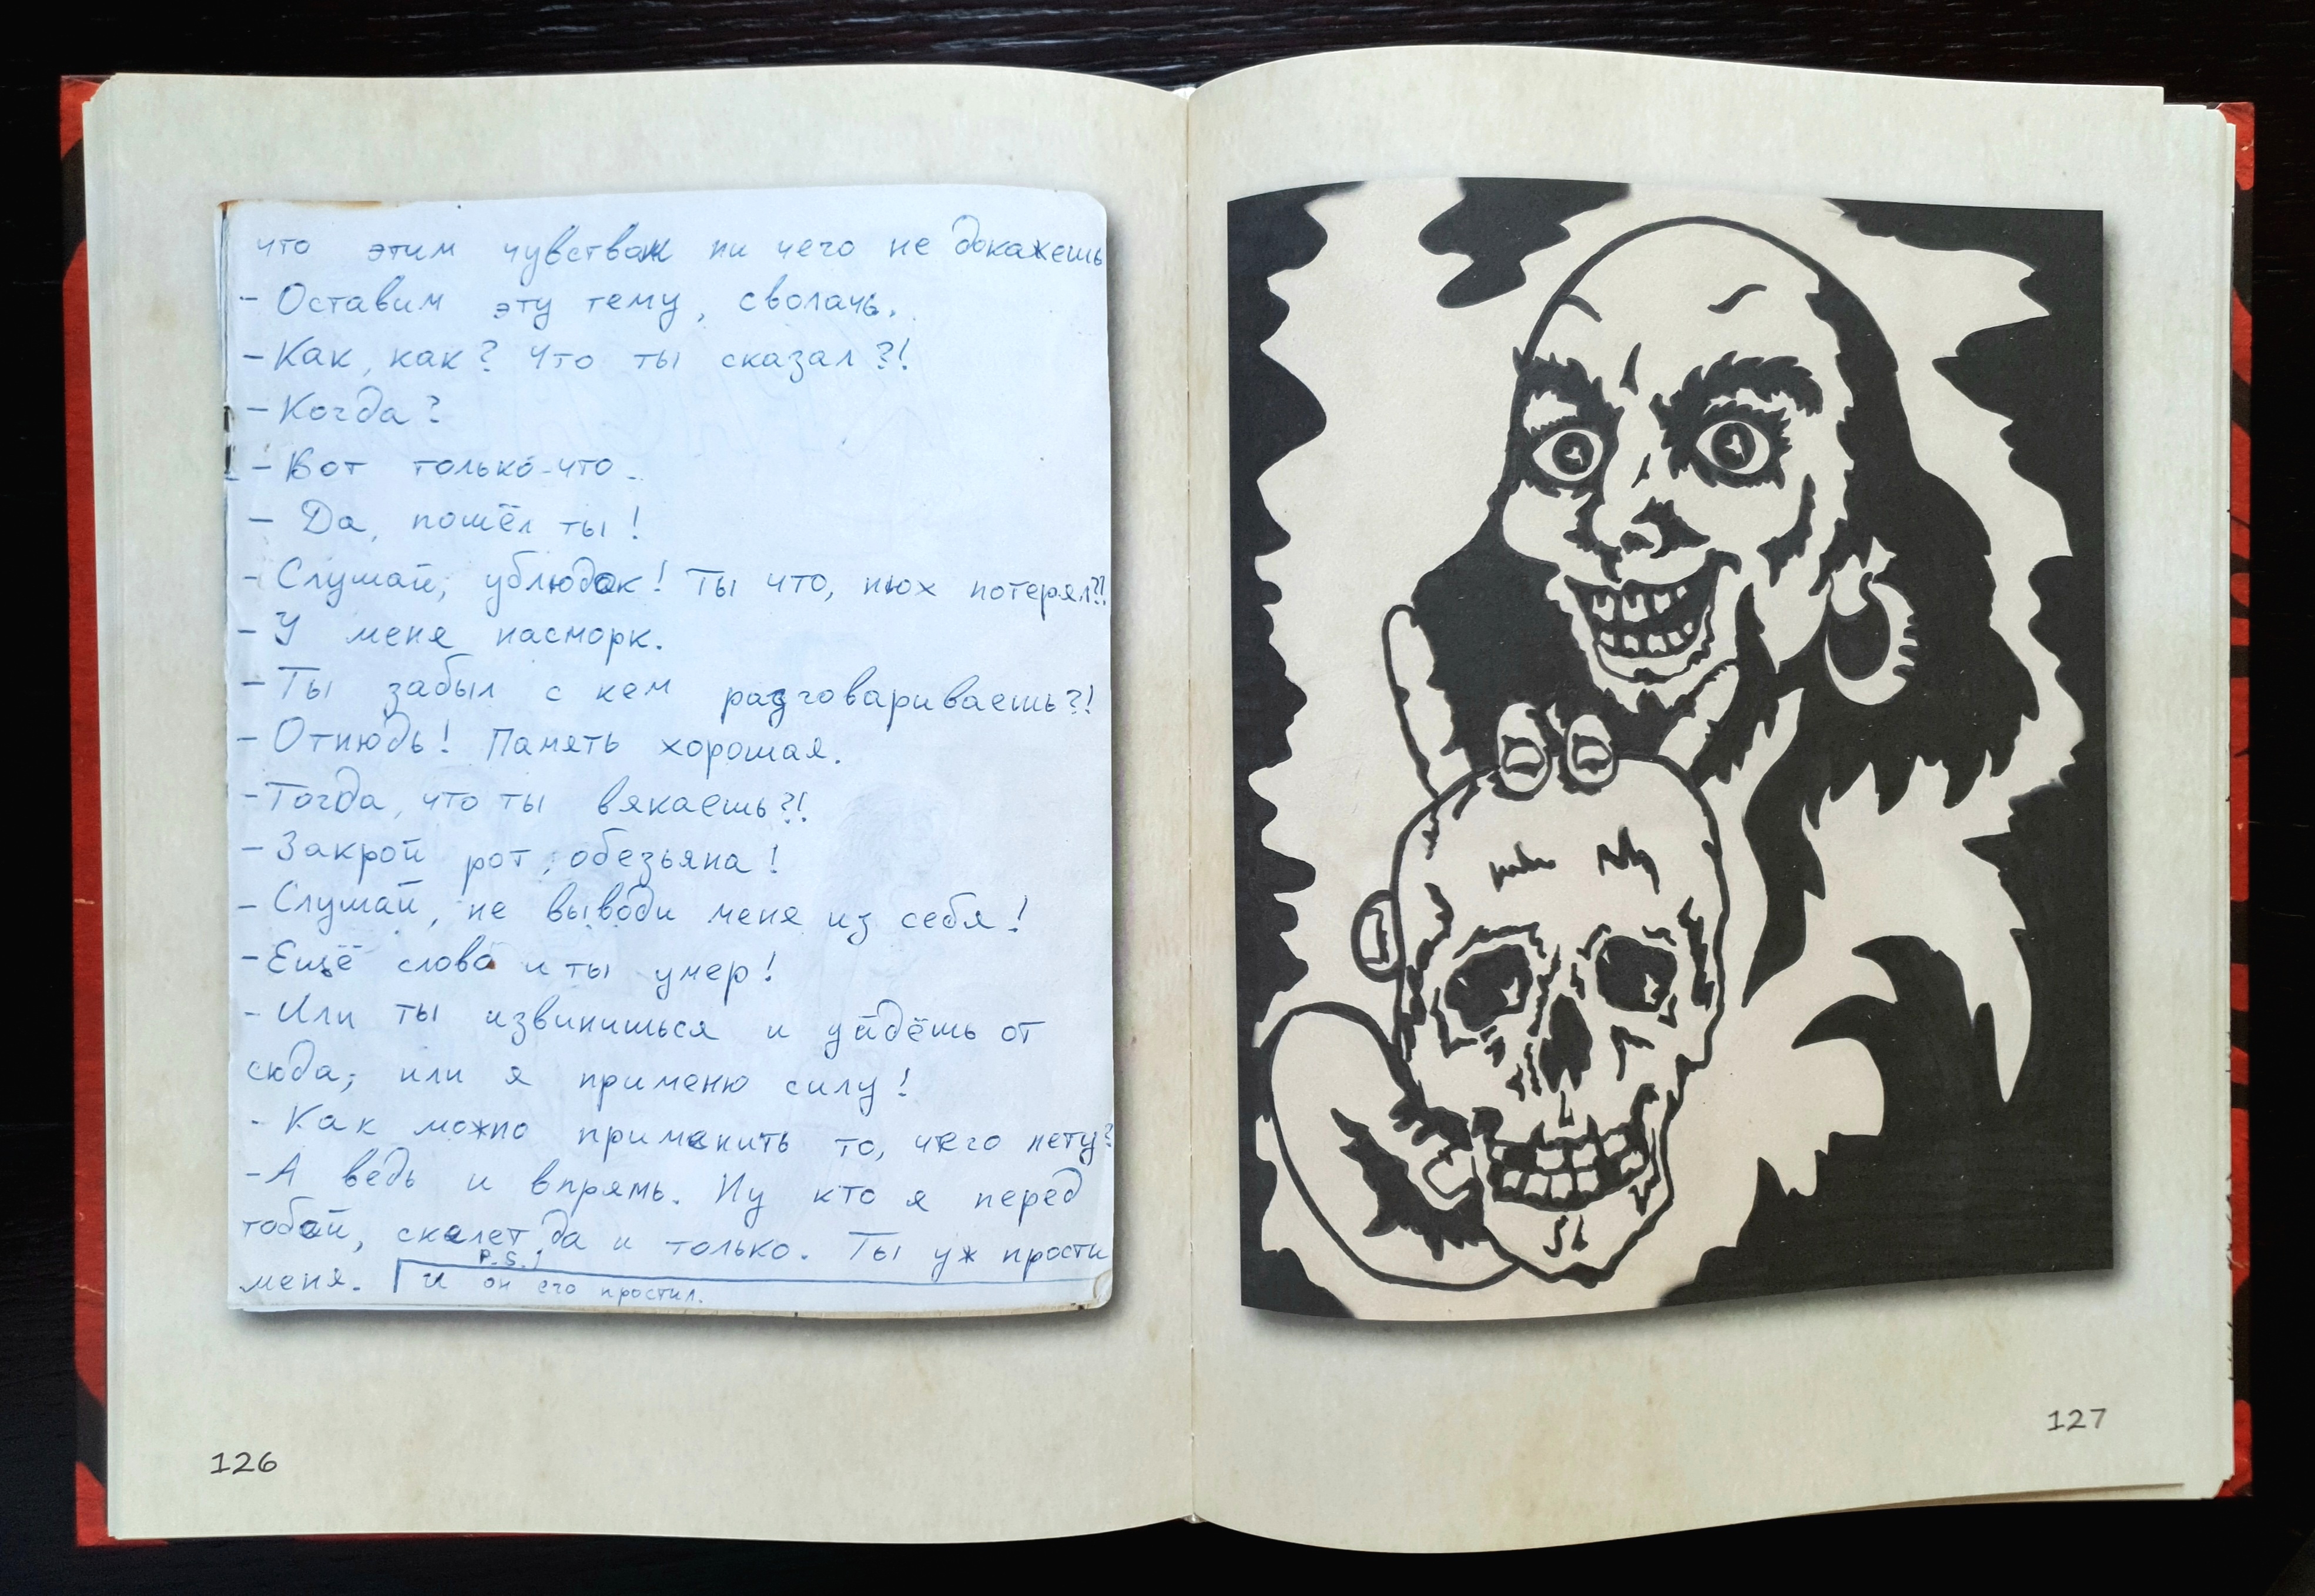 что этим чувствам ни чего не докажешь
- Оставим эту тему, сволачь.
- Как, как? Что ты сказал?!
- Когда?
- Вот только-что.
- Да, пошёл ты!
- Слушай, ублюдок! Ты что, нюх потерял?!
- У меня насморк.
- Ты забыл с кем разговариваешь?!
- Отнюдь! Память хорошая.
- Тогда, что ты вякаешь?!
- Закрой рот, обезьяна!
- Слушай, не выводи меня из себя!
- Ещё слово и ты умер!
- Или ты извинишься и уйдёшь от
сюда, или я применю силу!
- Как можно применить то, чего нету?
- А ведь и впрямь. Ну кто я перед
тобой, скелет да и только. Ты уж прости
меня. P.S.! И он его простил.
126
127